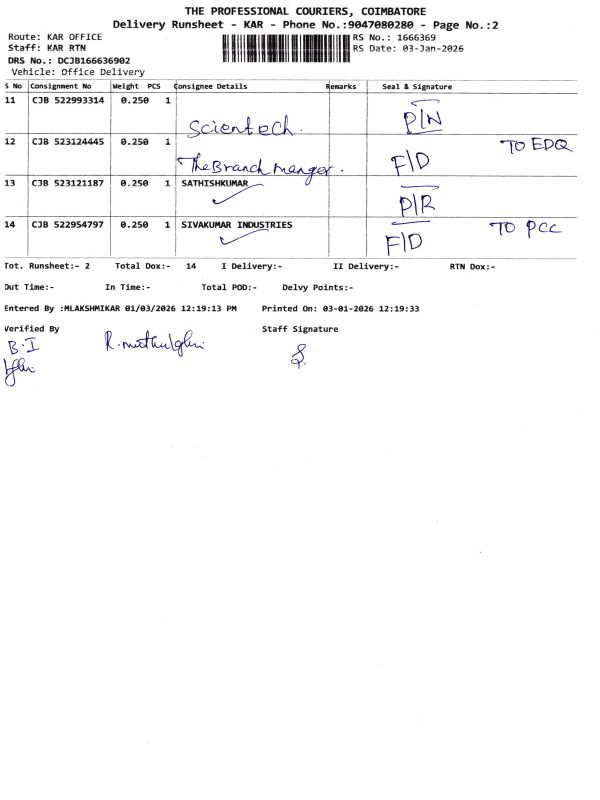 THE PROFESSIONAL COURIERS, COIMBATORE
Delivery Runsheet - KAR - Phone No.:9047080280 - Page No.:2
Route: KAR OFFICE RS No.: 1666369
Staff: KAR RTN RS Date: 03-Jan-2026
DRS No.: DCJB166636902
Vehicle: Office Delivery
S No Consignment No Weight PCS Consignee Details Remarks Seal & Signature
11 CJB 522993314 0.250 1 Scientech. P/N
12 CJB 523124445 0.250 1 The Branch manger. F/D TO EDQ
13 CJB 523121187 0.250 1 SATHISHKUMAR P/R
14 CJB 522954797 0.250 1 SIVAKUMAR INDUSTRIES F/D TO PCC
Tot. Runsheet:- 2 Total Dox:- 14 I Delivery:- II Delivery:- RTN Dox:-
Out Time:- In Time:- Total POD:- Delvy Points:-
Entered By :MLAKSHMIKAR 01/03/2026 12:19:13 PM Printed On: 03-01-2026 12:19:33
Verified By Staff Signature
B.I